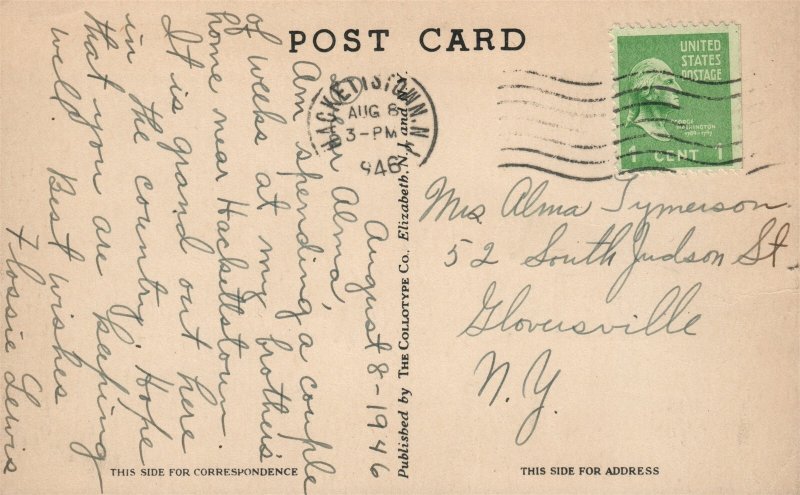 POST CARD
UNITED
STATES
POSTAGE
GEORGE
WASHINGTON
1789-1797
1 CENT 1
HACKETTSTOWN, N.J.
AUG 8
3-PM
1946
August 8-1946
Dear Alma,
Am spending a couple
of weeks at my brother's
home near Hackettstown.
It is grand out here
in the country. Hope
that you are keeping
well. Best wishes
Flossie Lewis
Published by THE COLLOTYPE CO., Elizabeth, N. J. and
Mrs Alma Tymerson.
52 South Judson St.
Gloversville
N.Y.
THIS SIDE FOR CORRESPONDENCE
THIS SIDE FOR ADDRESS